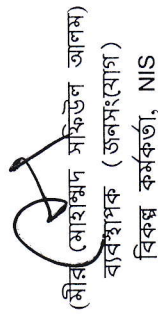 (মীর মোহাম্মদ সফিউল আলম)
ব্যবস্থাপক (জনসংযোগ)
বিকল্প কর্মকর্তা, NIS